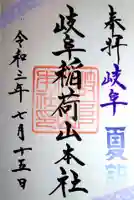 奉拝 岐阜 夏詣
岐阜稲荷山本社
令和三年七月十五日